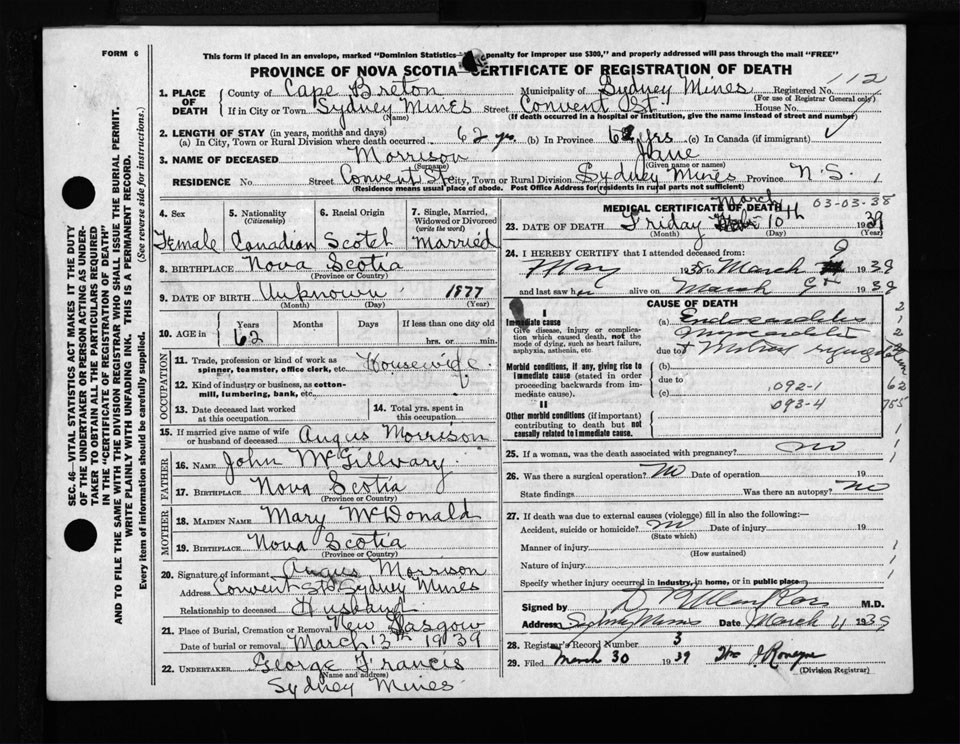 FORM 6
This form if placed in an envelope, marked "Dominion Statistics— penalty for improper use $300," and properly addressed will pass through the mail "FREE"
PROVINCE OF NOVA SCOTIA—CERTIFICATE OF REGISTRATION OF DEATH
112
1. PLACE OF DEATH
County of Cape Breton Municipality of Sydney Mines Registered No.
(For use of Registrar General only)
If in City or Town Sydney Mines Street Convent St. House No.
(Name) (If death occurred in a hospital or institution, give the name instead of street and number)
2. LENGTH OF STAY (in years, months and days)
(a) In City, Town or Rural Division where death occurred 62 yrs (b) In Province 62 yrs (c) In Canada (if immigrant)
3. NAME OF DECEASED Morrison Jane
(Surname) (Given name or names)
RESIDENCE No. Street Convent St. City, Town or Rural Division Sydney Mines Province N.S. 1
(Residence means usual place of abode. Post Office Address for residents in rural parts not sufficient)
4. Sex 5. Nationality 6. Racial Origin 7. Single, Married, Widowed or Divorced
(Citizenship) (write the word)
Female Canadian Scotch Married
8. BIRTHPLACE Nova Scotia
(Province or Country)
9. DATE OF BIRTH Unknown 1877
(Month) (Day) (Year)
10. AGE in Years Months Days If less than one day
62 hrs. or min.
OCCUPATION
11. Trade, profession or kind of work as spinner, teamster, office clerk, etc. Housewife
12. Kind of industry or business, as cotton-mill, lumbering, bank, etc.
13. Date deceased last worked at this occupation
14. Total yrs. spent in this occupation
15. If married give name of wife or husband of deceased Angus Morrison
FATHER
16. NAME John McGillvary
17. BIRTHPLACE Nova Scotia
(Province or Country)
MOTHER
18. MAIDEN NAME Mary McDonald
19. BIRTHPLACE Nova Scotia
(Province or Country)
20. Signature of informant Angus Morrison
Address Convent St Sydney Mines
Relationship to deceased Husband
21. Place of Burial, Cremation or Removal New Glasgow
Date of burial or removal March 13th 1939
22. UNDERTAKER George Francis
(Name and address)
Sydney Mines
MEDICAL CERTIFICATE OF DEATH 03-03-38
March
23. DATE OF DEATH Friday 10th 1939
(Month) (Day) (Year)
24. I HEREBY CERTIFY that I attended deceased from:
May 1938 to March 9 1939
and last saw her alive on March 9th 1939
CAUSE OF DEATH
I
Immediate cause
Give disease, injury or complication which caused death, not the mode of dying, such as heart failure, asphyxia, asthenia, etc.
(a) Endocarditis 2
Myocarditis 2
due to + Mitral
Morbid conditions, if any, giving rise to immediate cause (stated in order proceeding backwards from immediate cause).
(b)
due to 62
(c) .092-1
II
.093-4 755
Other morbid conditions (important) contributing to death but not causally related to immediate cause.
25. If a woman, was the death associated with pregnancy? no
26. Was there a surgical operation? No Date of operation
State findings Was there an autopsy? no
27. If death was due to external causes (violence) fill in also the following:—
Accident, suicide or homicide? no Date of injury
(State which)
Manner of injury 1
(How sustained)
Nature of injury 1
Specify whether injury occurred in industry, in home, or in public place
Signed by M.D.
Address Sydney Mines Date March 11 1939
28. Registrar's Record Number 3
29. Filed March 30 1939
(Division Registrar)
SEC. 46—VITAL STATISTICS ACT MAKES IT THE DUTY
OF THE UNDERTAKER OR PERSON ACTING AS UNDER-
TAKER TO OBTAIN ALL THE PARTICULARS REQUIRED
IN THE "CERTIFICATE OF REGISTRATION OF DEATH"
AND TO FILE THE SAME WITH THE DIVISION REGISTRAR WHO SHALL ISSUE THE BURIAL PERMIT.
WRITE PLAINLY WITH UNFADING INK. THIS IS A PERMANENT RECORD.
Every item of information should be carefully supplied. (See reverse side for instructions.)